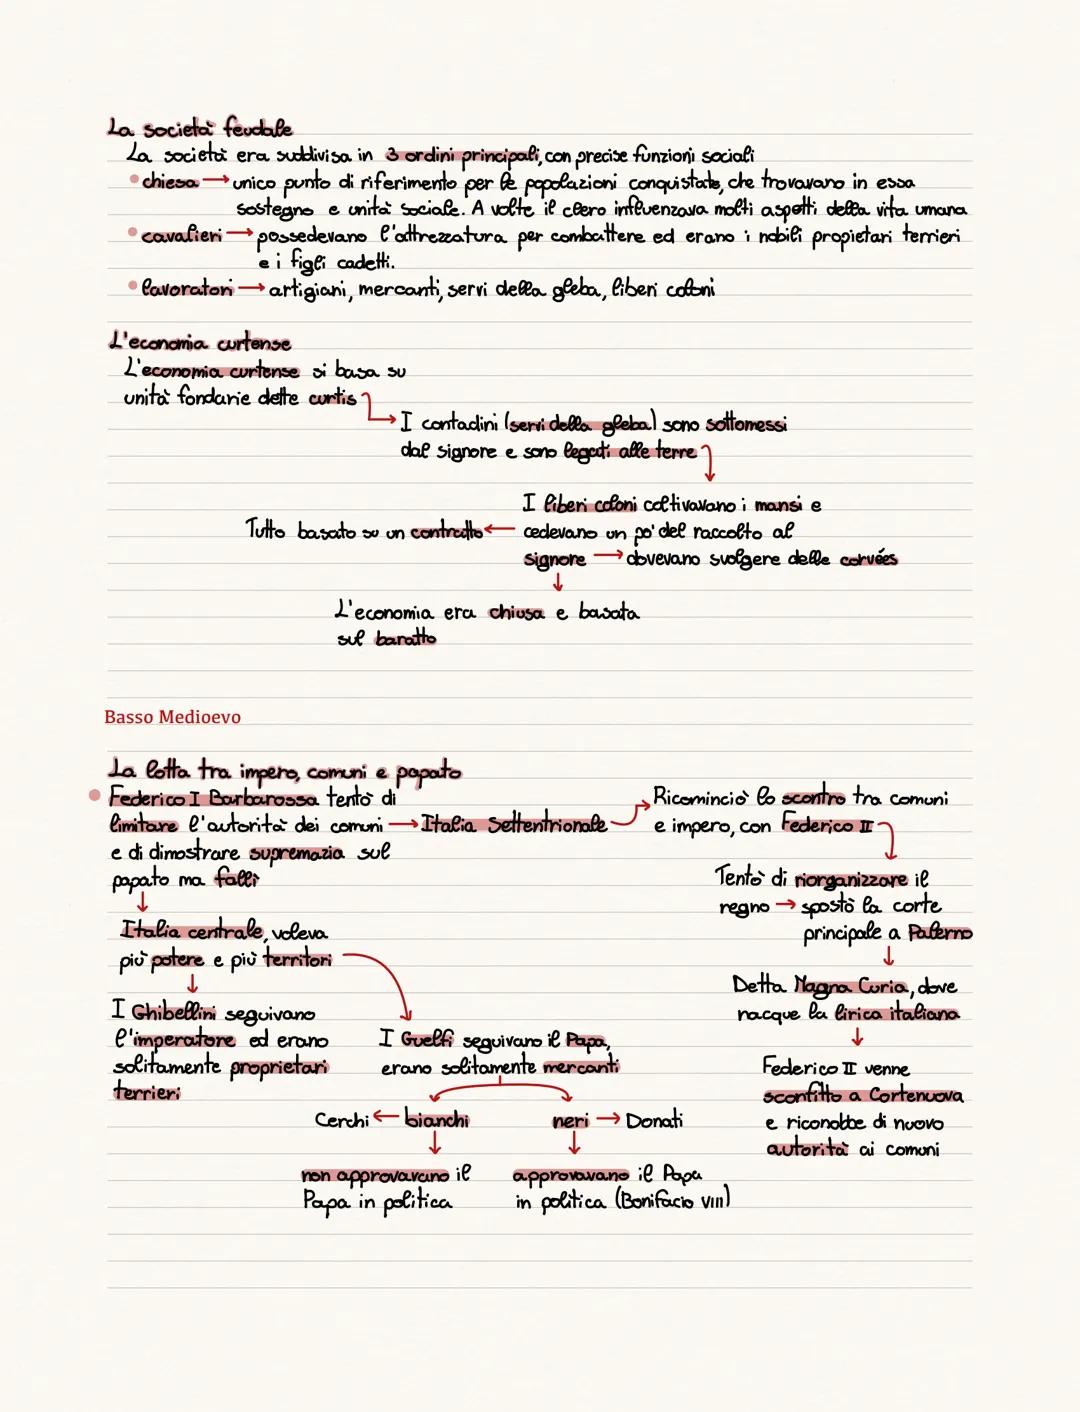 La società feudale
La società era suddivisa in 3 ordini principali, con precise funzioni sociali
• chiesa → unico punto di riferimento per le popolazioni conquistate, che trovavano in essa
sostegno e unità sociale. A volte il clero influenzava molti aspetti della vita umana
• cavalieri → possedevano l'attrezzatura per combattere ed erano i nobili propietari terrieri
e i figli cadetti.
• lavoratori → artigiani, mercanti, servi della gleba, liberi coloni
L'economia curtense
L'economia curtense si basa su
unità fondarie dette curtis
I contadini (servi della gleba) sono sottomessi
dal signore e sono legati alle terre
I liberi coloni coltivavano i mansi e
cedevano un po' del raccolto al
signore → dovevano svolgere delle corvées
Tutto basato su un contratto ←
L'economia era chiusa e basata
sul baratto
Basso Medioevo
La lotta tra impero, comuni e papato
• Federico I Barbarossa tentò di
limitare l'autorità dei comuni → Italia Settentrionale
e di dimostrare supremazia sul
papato ma fallì
Ricominciò lo scontro tra comuni
e impero, con Federico II
Tentò di riorganizzare il
regno → spostò la corte
principale a Palermo
Detta Magna Curia, dove
nacque la lirica italiana
Federico II venne
sconfitto a Cortenuova
e riconobbe di nuovo
autorità ai comuni
Italia centrale, voleva
più potere e più territori
I Ghibellini seguivano
l'imperatore ed erano
solitamente proprietari
terrieri
I Guelfi seguivano il Papa,
erano solitamente mercanti
Cerchi ← bianchi
neri → Donati
non approvavano il
Papa in politica
approvavano il Papa
in politica (Bonifacio VIII)